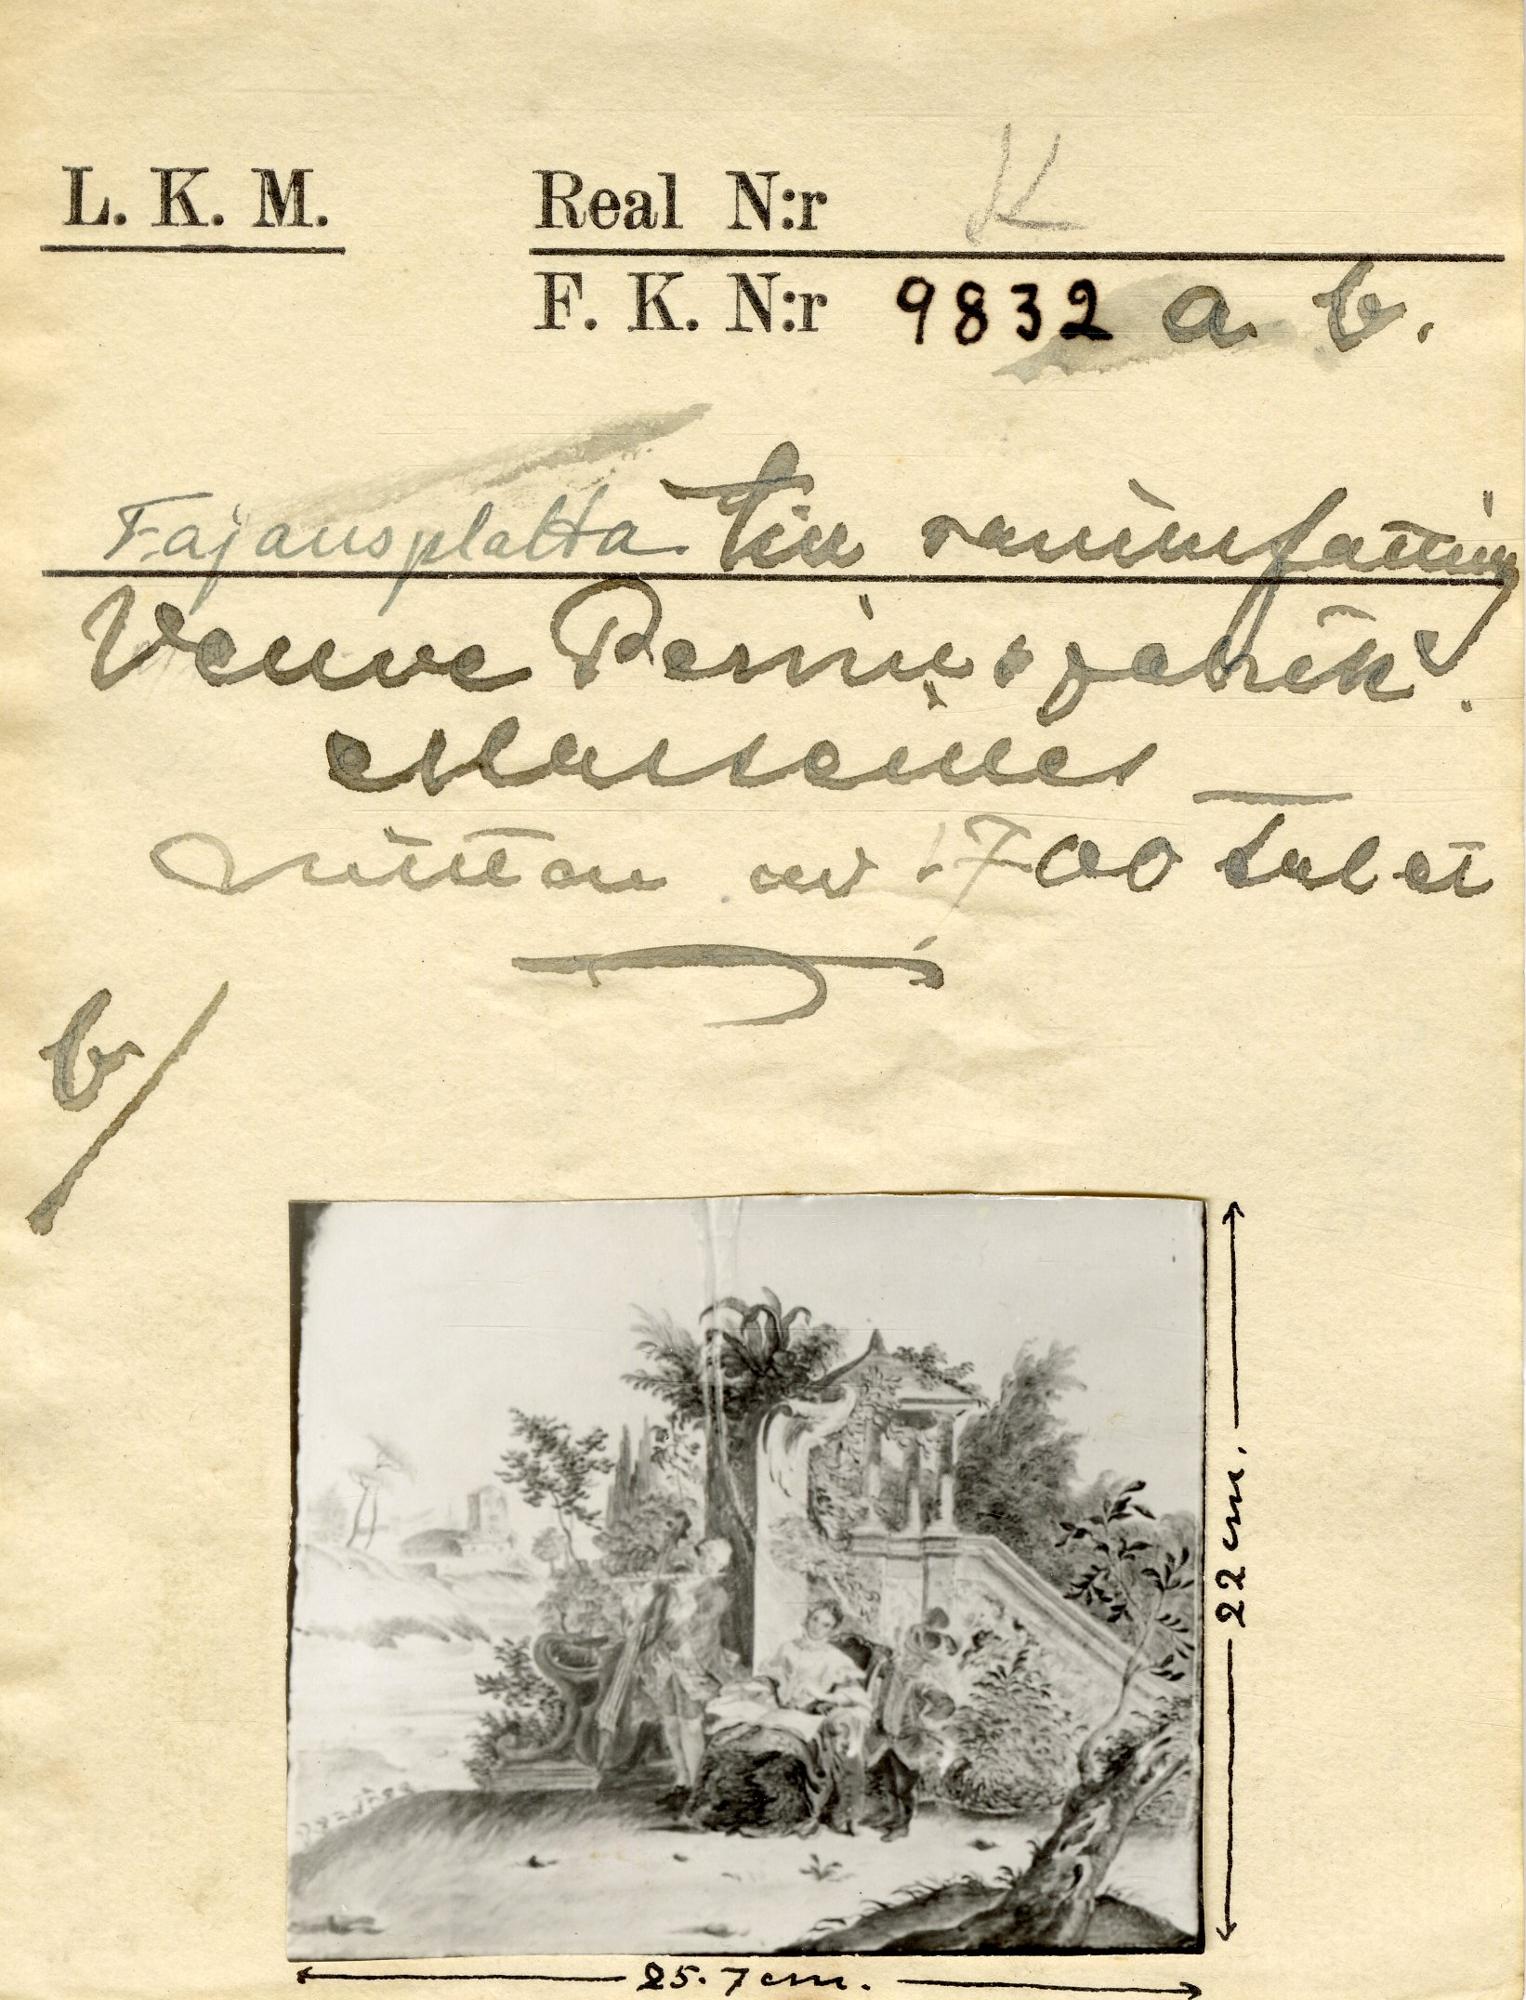 L. K. M.
Real N:r K
F. K. N:r 9832 a. b.
Fajansplatta till raminfattning
Veuve Perrins fabrik.
Marseilles
mitten av 1700 talet
b/
22 cm.
25.7 cm.